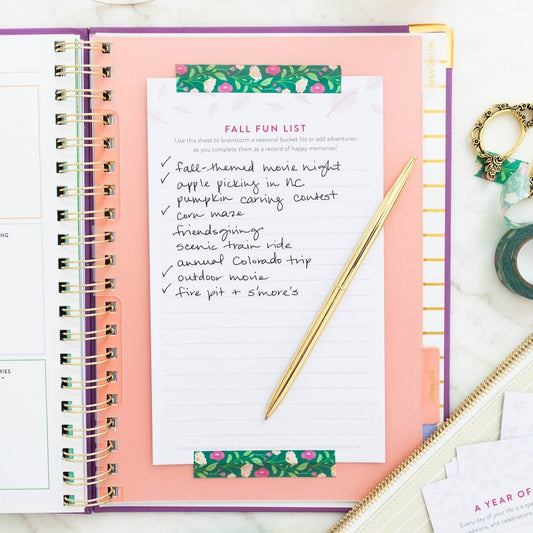 WILDCARD
FALL FUN LIST
Use this sheet to brainstorm a seasonal bucket list or add adventures
as you complete them as a record of happy memories!
✓ fall-themed movie night
✓ apple picking in NC
pumpkin carving contest
✓ corn maze
friendsgiving
scenic train ride
annual Colorado trip
✓ outdoor movie
✓ fire pit + s'more's
NOVEMBER
A YEAR OF
Every day of your life is a spe